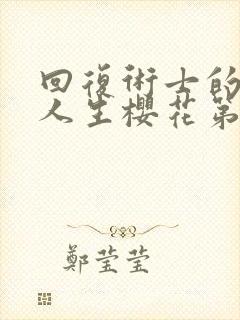 回復術士的
人生櫻花第
鄭莹莹